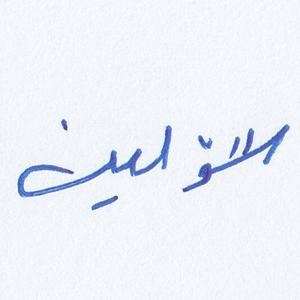 الأولين